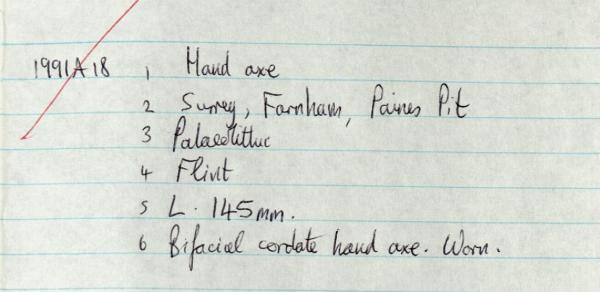 1991A18 1 Hand axe
2 Surrey, Farnham, Paines Pit
3 Palaeolithic
4 Flint
5 L. 145mm.
6 Bifacial cordate hand axe. Worn.